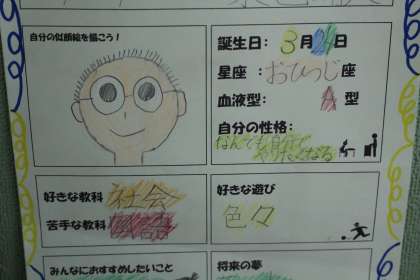 自分の似顔絵を描こう！
誕生日： 3月24日
星座 ： おひつじ座
血液型： A 型
自分の性格：
なんでも自分で
やりたくなる
好きな教科 社会
苦手な教科 国語
好きな遊び
色々
みんなにおすすめしたいこと
将来の夢